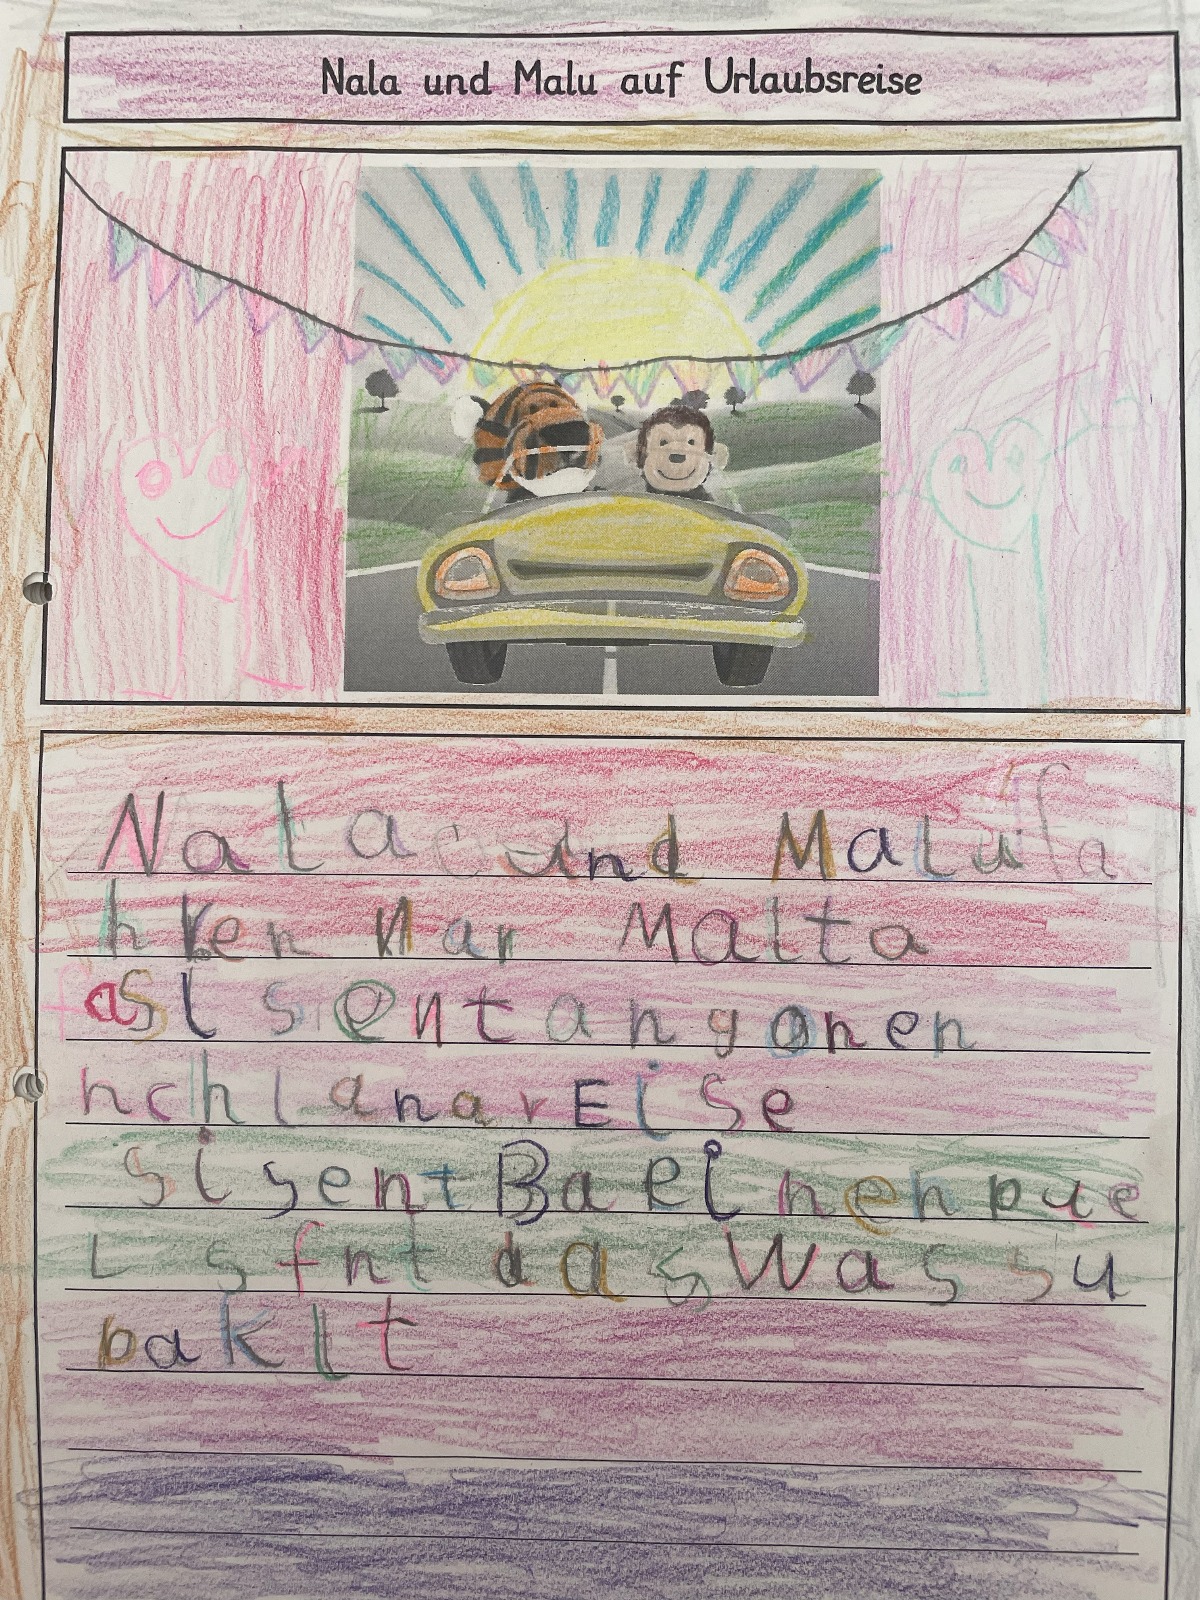 Nala und Malu auf Urlaubsreise
Nala und Malu fa
hren nar Malta
fasl sentangonen
nchlanarEise
sisentBaeinenpue
L sfnt dasWassu
baklt